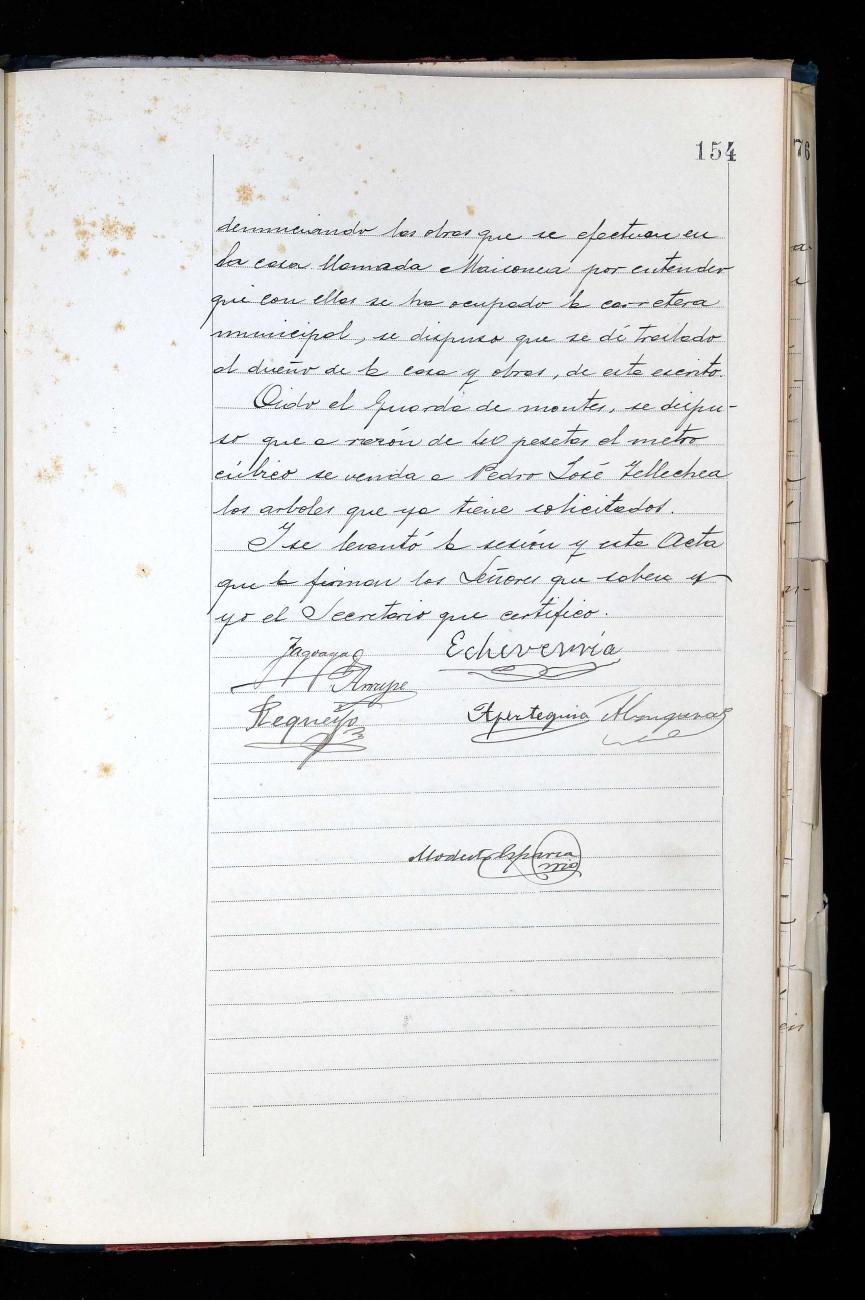 154
76
denunciando las obras que se efectuan en
la casa llamada Maisonea por entender
que con ellas se ha ocupado la carretera
municipal, se dispuso que se dé traslado
al dueño de la casa y obras, de este escrito.
Oido el Guarda de montes, se dispu-
so que a razón de 40 pesetas el metro
cúbico se venda a Pedro José Tellechea
los arboles que ya tiene solicitados.
Y se levantó la sesión y esta Acta
que la firman los Señores que saben y
yo el Secretario que certifico.
Echeverria
Arrupe
Requejo Apezteguia
Modesto Esparza